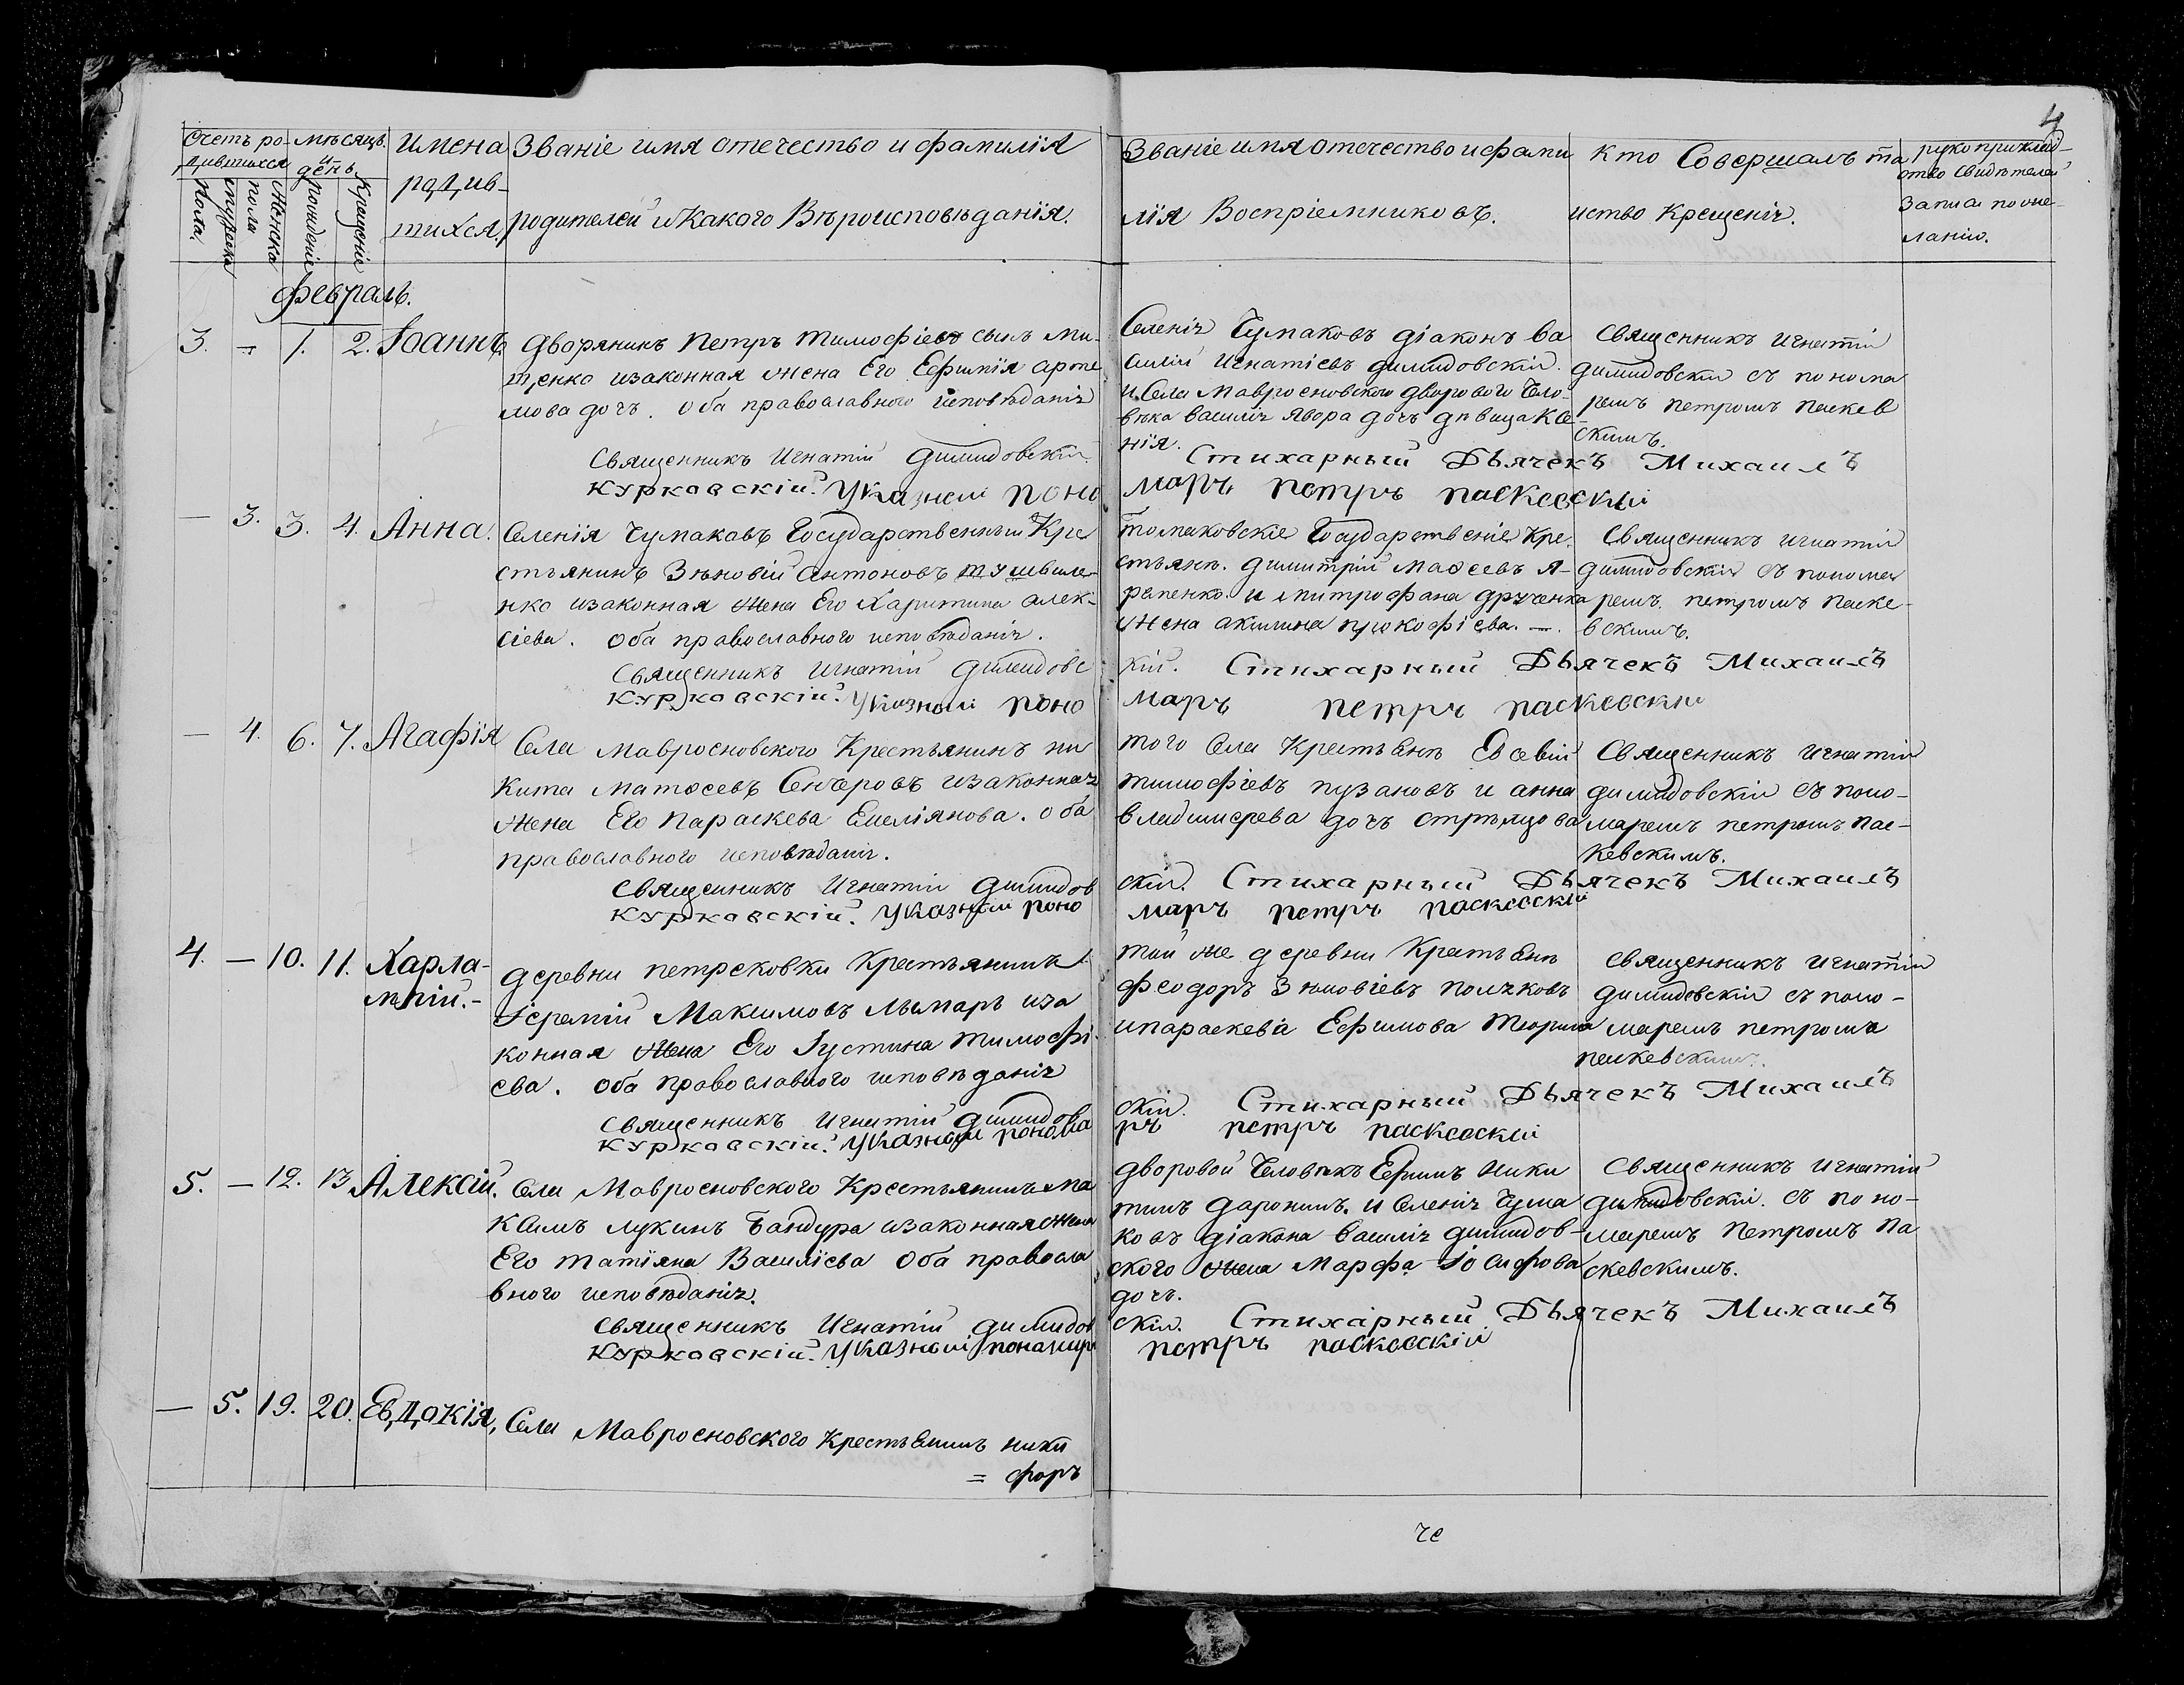 4
Счетъ ро-
дившихся
мѣсяцъ
и
день.
Мужеска
пола.
Женска
пола
рожденіе
Крещеніе
Имена
родив-
шихся.
Званіе имя отечество и фамилія
родителей и Какого Вѣроисповѣданія.
Званіе имя отечество и фами
лія Воспріемниковъ.
Кто Совершалъ та
инство Крещенія.
рукоприклад-
ство Свидѣтелей
записи по же-
ланію.
Февраль.
3. — 1. 2. Іоаннъ
Дворянинъ Петръ Тимофіевъ сынъ Ми-
щенко изаконная жена Его Евфимія Арте
мова дочъ. Оба православного исповѣданія
Священникъ Игнатій Димидовскій.
Курковскій. Указный поно
Селенія Чумаковъ діаконъ Ва
силій Игнатіевъ Димидовскій.
и Села Мавросновского дворового Чело-
вѣка Василія Явора дочъ дѣвица Ксе-
нія.
Стихарный Дьячекъ Михаилъ
маръ Петръ Паскевскій
Священникъ Игнатій
Димидовскій съ понома
ремъ Петромъ Паскев
скимъ.
— 3. 3. 4. Анна.
Селенія Чумаковъ Государственный Кре
стьянинъ Зѣновій Антоновъ
нко изаконная жена Его Харитина Алек-
сіева. Оба православного исповѣданія.
Священникъ Игнатій Димидовс
Курковскій. Указный поно
Томаковскіе Государственіе Кре-
стьяне. Димитрій Мафеевъ Я-
рапенко и Митрофана Друченка
жена Акилина Прокофіева. —.
кій. Стихарный Дьячекъ Михаилъ
маръ Петръ Паскевскій
Священникъ Игнатій
Димидовскій съ понома
ремъ. Петромъ Паске-
вскимъ.
— 4. 6. 7. Агафія
Села Мавросновского Крестьянинъ Ни
кита Матфеевъ изаконная
жена Его Параскева Емеліянова. Оба
православного исповѣданія.
Священникъ Игнатій Димидов
Курковскій. Указный поно
того Села Крестьяне Евсевій
Тимофіевъ Пузановъ и Анна
Владимерева дочъ Стрѣлцова
скій. Стихарный Дьячекъ Михаилъ
маръ Петръ Паскевскій
Священникъ Игнатій
Димидовскій съ поно-
маремъ Петромъ Пас-
кевскимъ.
4. — 10. 11. Харла-
мпій.-
Деревни Петрековки Крестьянинъ
Іеремій Максимовъ Лымаръ иза
конная жена Его Іустина Тимофі-
ева. Оба православного исповѣданія
Священникъ Игнатій Димидов
Курковскій. Указный понома
той же деревни Крестьяне
Феодоръ Зѣновіевъ Полчковъ
и Параскевіа Ефимова
скій. Стихарный Дьячекъ Михаилъ
ръ Петръ Паскевскій
Священникъ Игнатій
Димидовскій съ поно-
маремъ Петромъ
Паскевскимъ.
5. — 12. 13 Алексій.
Села Мавросновского Крестьянинъ Ма
ксимъ Лукинъ Бандура изаконная жена
Его Татіяна Василіева Оба правосла
вного исповѣданія.
Священникъ Игнатій Димидов
Курковскій. Указный пономаръ
дворовой Человѣкъ Ефимъ Ники
тинъ Даронинъ. и Селенія Чума
ковъ діакона Василія Димидов-
ского жена Марфа Іосифова
дочъ.
скій. Стихарный Дьячекъ Михаилъ
Петръ Паскевскій
Священникъ Игнатій
Димидовскій. съ поно-
маремъ Петромъ Па
скевскимъ.
— 5. 19. 20. Евдокія,
Села Мавросновского Крестьянинъ Ники
= форъ